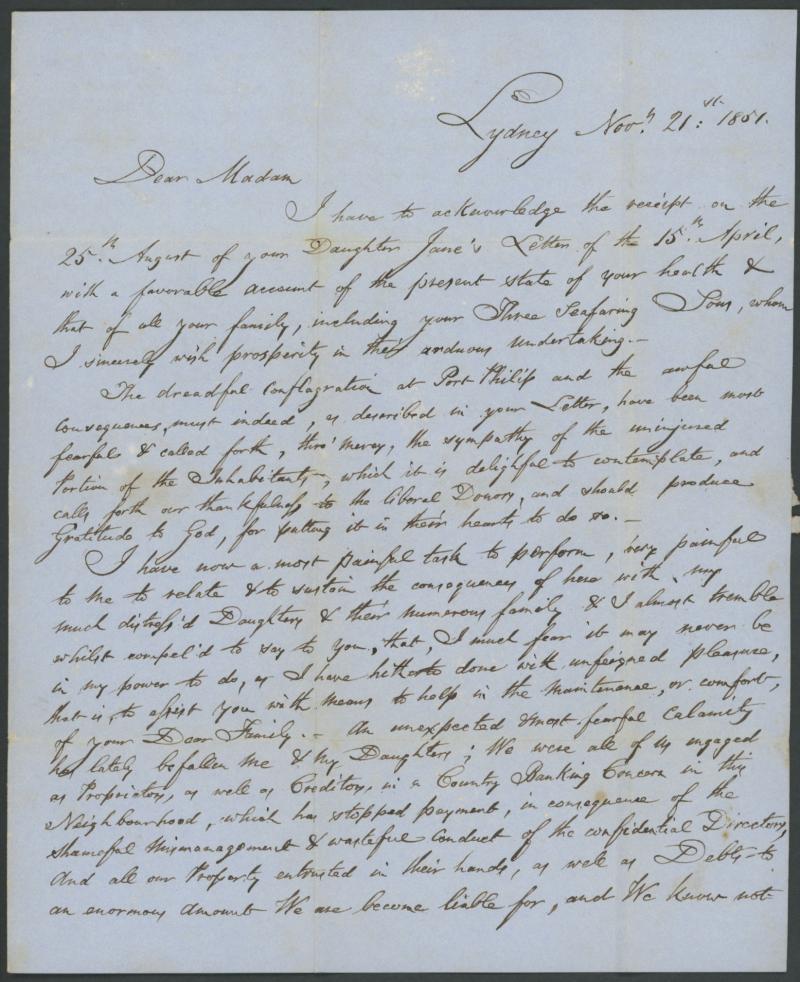 Lydney Nov.h 21:st 1851.
Dear Madam
I have to acknowledge the receipt on the
25.th August of your Daughter Jane's Letter of the 15.th April,
with a favorable account of the present state of your health &
that of all your family, including your Three Seafaring Sons, whom
I sincerely wish prosperity in their arduous undertaking.-
The dreadful Conflagration at Port Philip and the awful
consequences, must indeed, as described in your Letter, have been most
fearful & called forth, thro' mercy, the sympathy of the uninjured
Portion of the Inhabitants, which it is delighful to contemplate, and
calls forth our thankfulness to the liberal Donors, and should produce
Gratitude to God, for putting it in their hearts to do so.-
I have now a most painful task to perform, very painful
to me to relate & to sustain the consequences of here with my
much distress'd Daughters & their numerous family & I almost tremble
whilst compel'd to say to you, that, I much fear it may never be
in my power to do, as I have hitherto done with unfeigned pleasure,
that is, to assist you with means to help in the maintenance, or comfort,
of your Dear Family.- An unexpected & most fearful Calamity
has lately befallen me & my Daughters; We were all of us engaged
as Proprietors, as well as Creditors, in a Country Banking Concern in this
Neighbourhood, which has stopped payment, in consequence of the
shameful Mismanagement & wasteful Conduct of the confidential Directors,
And all our Property entrusted in their hands, as well as Debts to
an enormous amount We are become liable for, and We know not